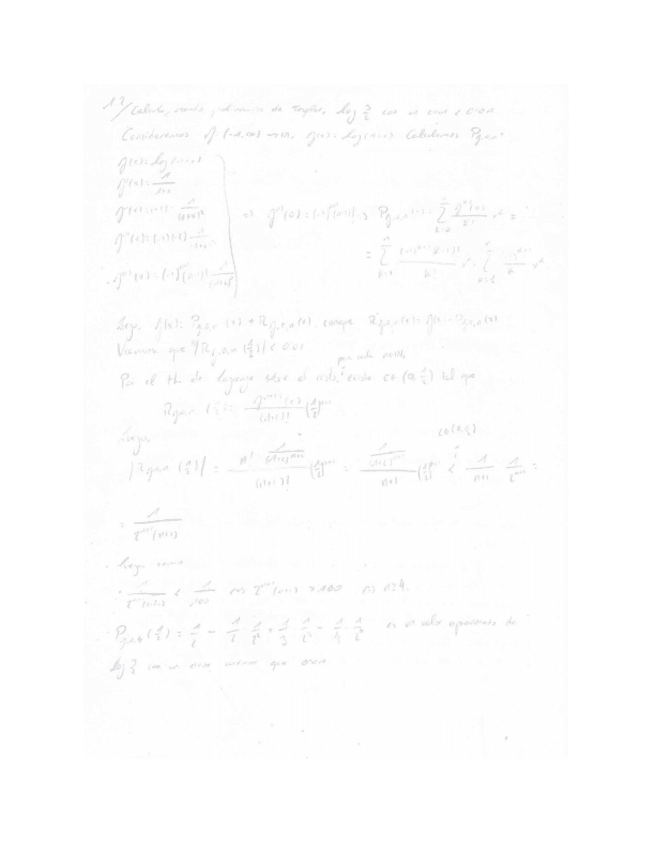 12/ Calcula, usando polinomios de Taylor, log 3/2 con un error < 0.01
Consideremos f: (-1,∞) → ℝ, f(x) = log(1+x). Calculamos P_{f,0,n}
f(x) = log(1+x)
f'(x) = 1/(1+x)
f''(x) = (-1) 1/(1+x)²
f'''(x) = (-1)(-2) 1/(1+x)³
f^{n)}(x) = (-1)^{n+1} (n-1)! 1/(1+x)^n
⇒ f^{n)}(0) = (-1)^{n+1} (n-1)! ⇒ P_{f,0,n}(x) = Σ_{k=0}^{n} f^{k)}(0)/k! x^k =
= Σ_{k=1}^{n} (-1)^{k+1} (k-1)!/k! x^k = Σ_{k=1}^{n} (-1)^{k+1}/k x^k
Luego f(x) = P_{f,0,n}(x) + R_{f,0,n}(x), R_{f,0,n}(x) = f(x) - P_{f,0,n}(x)
Veamos que |R_{f,0,n}(1/2)| < 0.01
por cada n∈ℕ,
Por el th de Lagrange sobre el resto, existe c ∈ (0, 1/2) tal que
R_{f,0,n}(1/2) = f^{n+1)}(c)/(n+1)! (1/2)^{n+1}
Luego,
c∈(0,1/2)
|R_{f,0,n}(1/2)| = n! 1/(1+c)^{n+1} / (n+1)! (1/2)^{n+1} = 1/(1+c)^{n+1} / n+1 (1/2)^{n+1} < 1/n+1 · 1/2^{n+1} =
= 1/2^{n+1}(n+1)
Luego como
1/2^{n+1}(n+1) < 1/100 ⇔ 2^{n+1}(n+1) > 100 ⇔ n≥4.
P_{f,0,4}(1/2) = 1/2 - 1/2 · 1/2² + 1/3 · 1/2³ - 1/4 · 1/2⁴ es un valor aproximado de
log 3/2 con un error menor que 0.01